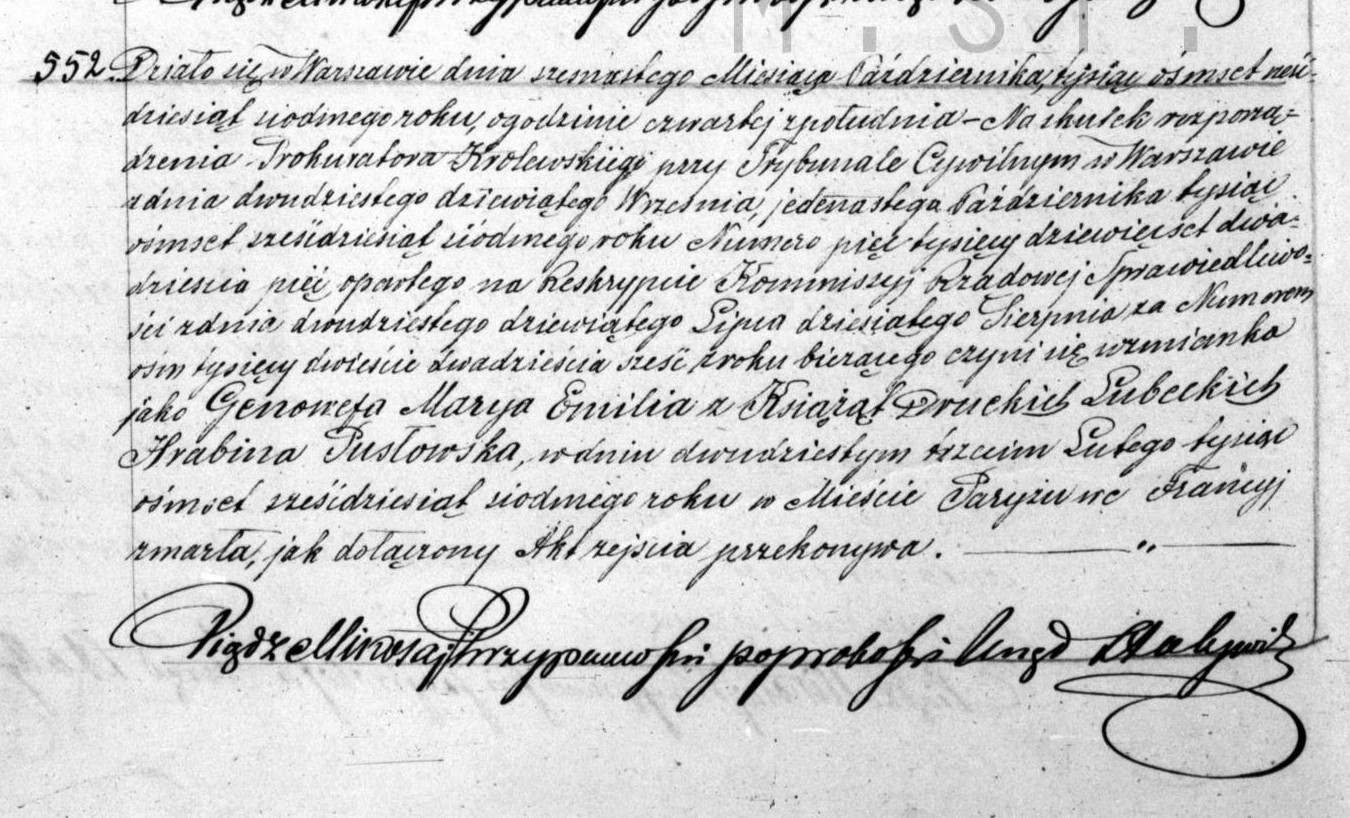 552. Działo się w Warszawie dnia szesnastego Miesiąca Października, tysiąc ośmset sześ-
dziesiąt siodmego roku, o godzinie czwartej z południa – Na skutek rozporzą-
dzenia Prokuratora Krolewskiego przy Trybunale Cywilnym w Warszawie
z dnia dwudziestego dziewiątego Września, jedenastego Października tysiąc
ośmset sześćdziesiąt siódmego roku Numero pięć tysięcy dziewięćset dwa-
dzieścia pięć opartego na Reskrypcie Kommissyj Rządowej Sprawiedliwo-
ści z dnia dwudziestego dziewiątego Lipca dziesiątego Sierpnia za Numerem
ośm tysięcy dwieście dwadzieścia sześć z roku bieżącego czyni się wzmianka
jako Genowefa Marya Emilia z Książąt Druckich Lubeckich
Hrabina Pusłowska, w dniu dwudziestym trzecim Lutego tysiąc
ośmset sześćdziesiąt siodmego roku w Mieście Paryżu we Francyj
zmarła, jak dołączony Akt zejścia przekonywa.
Xiądz Mikołaj